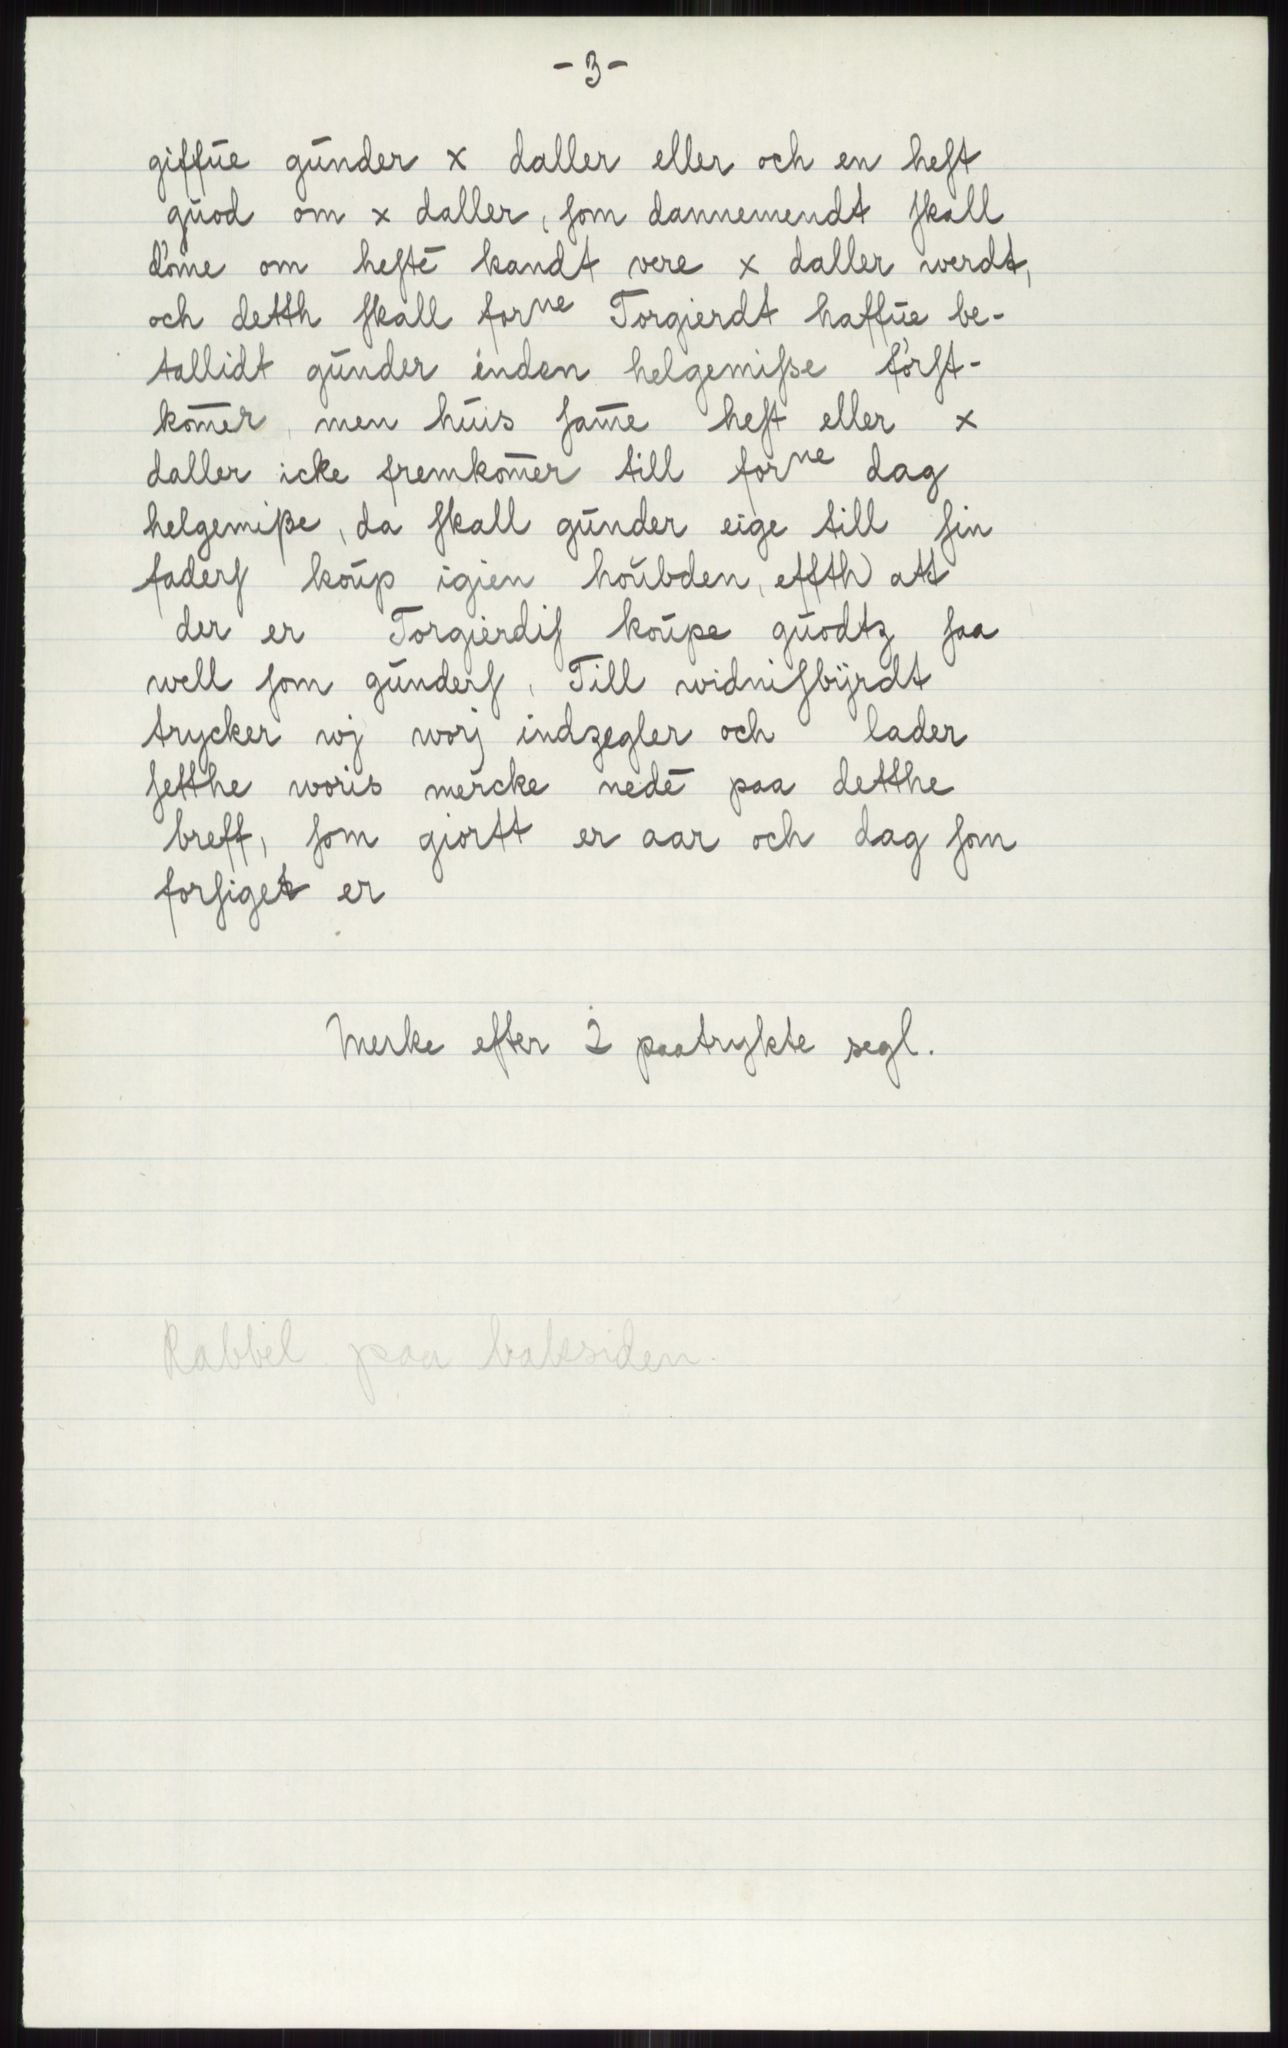 - 3 -
giffūe gūnder x daller eller och en heſt
gūod om x daller, ſom dannemendt ſkall
döme om hestē kandt vere x daller werdt,
och detth ſkall forⁿᵉ Torgierdt haffūe be-
tallidt gūnder inden helgemiſse förſt-
kom̄er, men hūis ſam̄e heſt eller x
daller icke fremkom̄er till forⁿᵉ dag
helgemiſse, da ſkall gūnder eige till ſin
faderſ koūp igien hoūbden, effth att
der er Torgierdiſ koūpe gūodtz ſaa
well ſom gūnderſ. Till widniſbÿrdt
trycker wj worj indzegler och lader
ſetthe woris mercke nedē paa detthe
breff, ſom giortt er aar och dag ſom
forſiget er
Merke efter 2 paatrykte segl.
Rabbel paa baksiden.